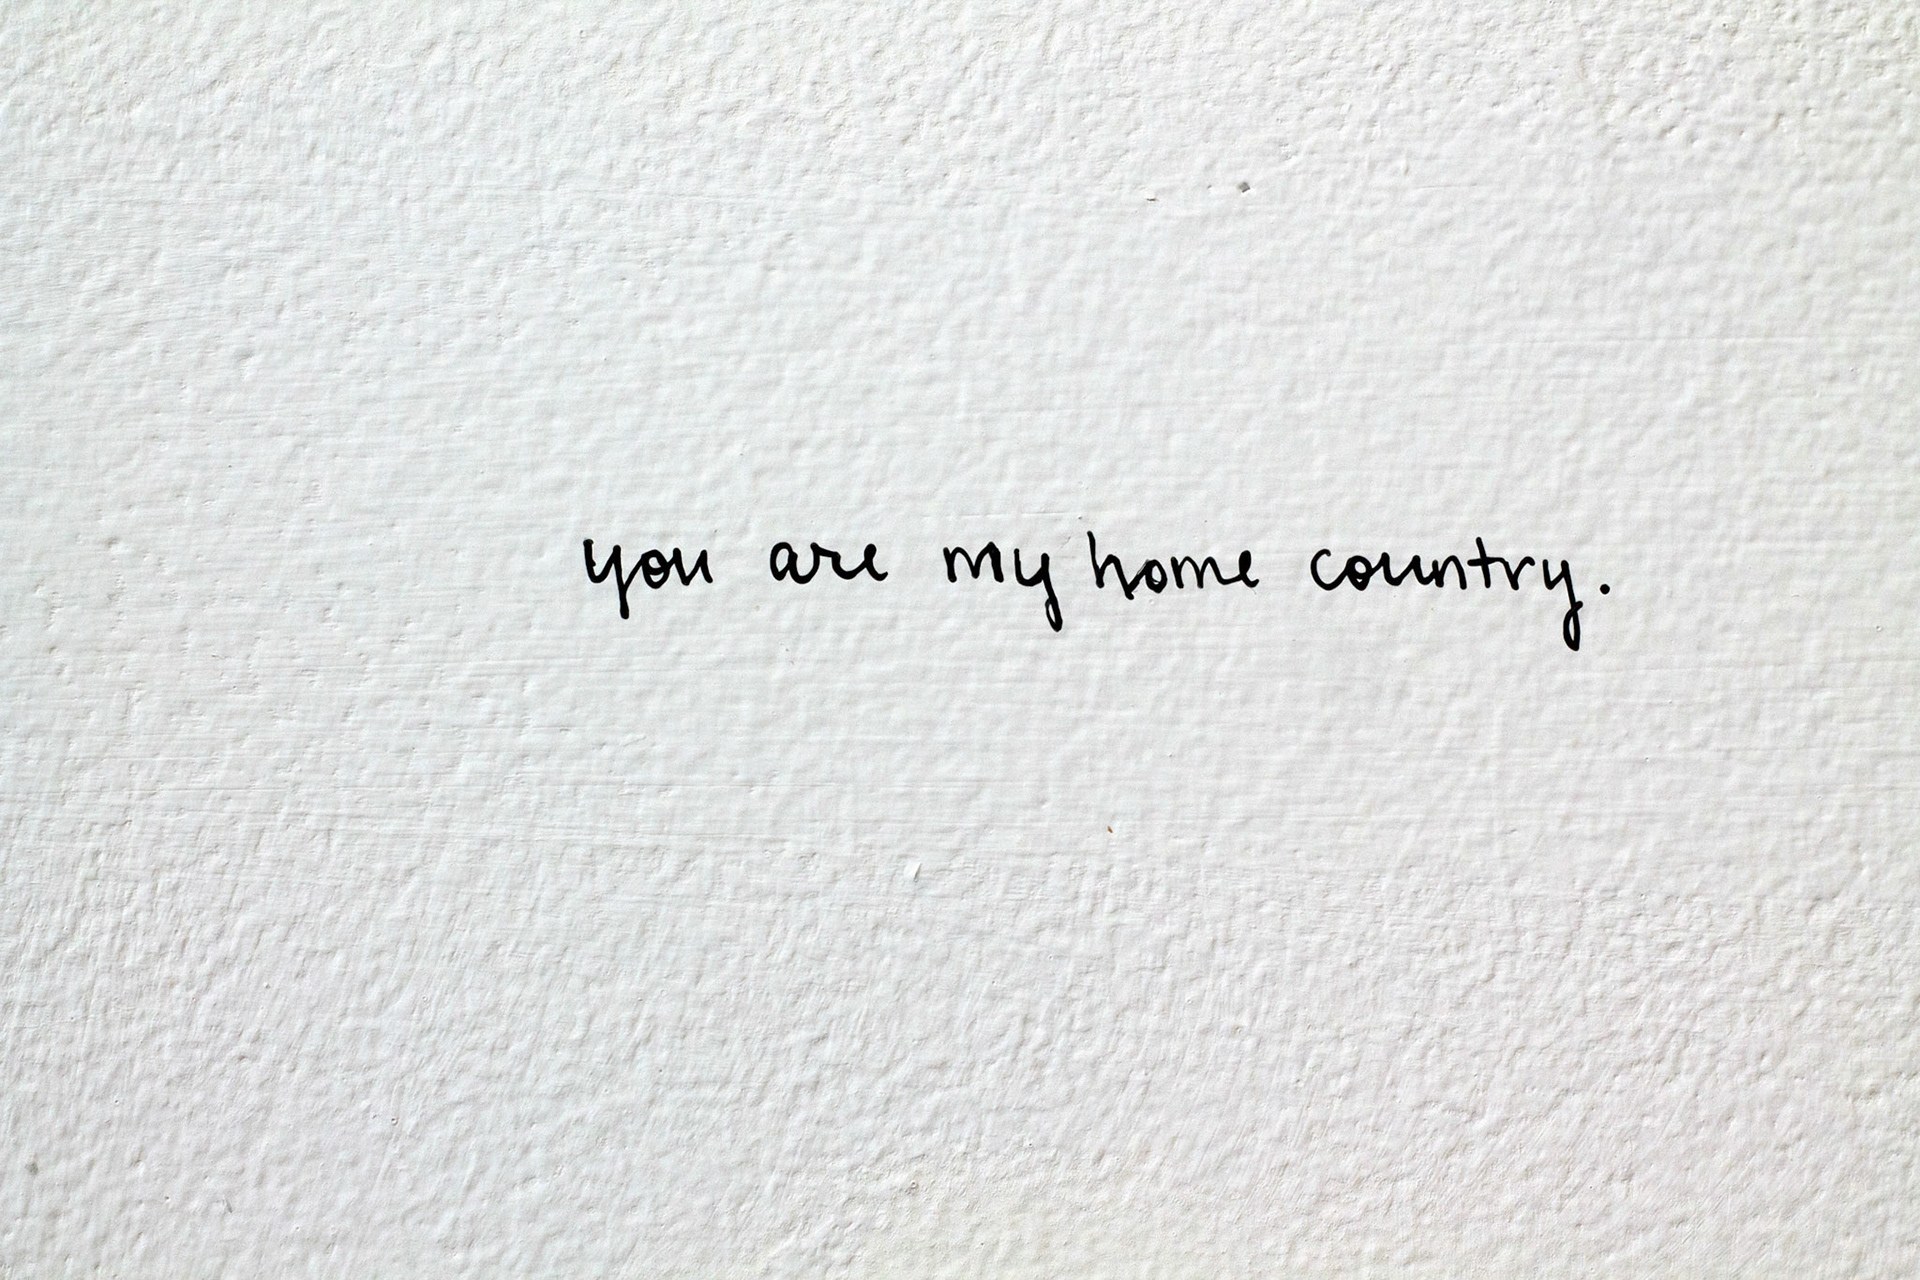 you are my home country.